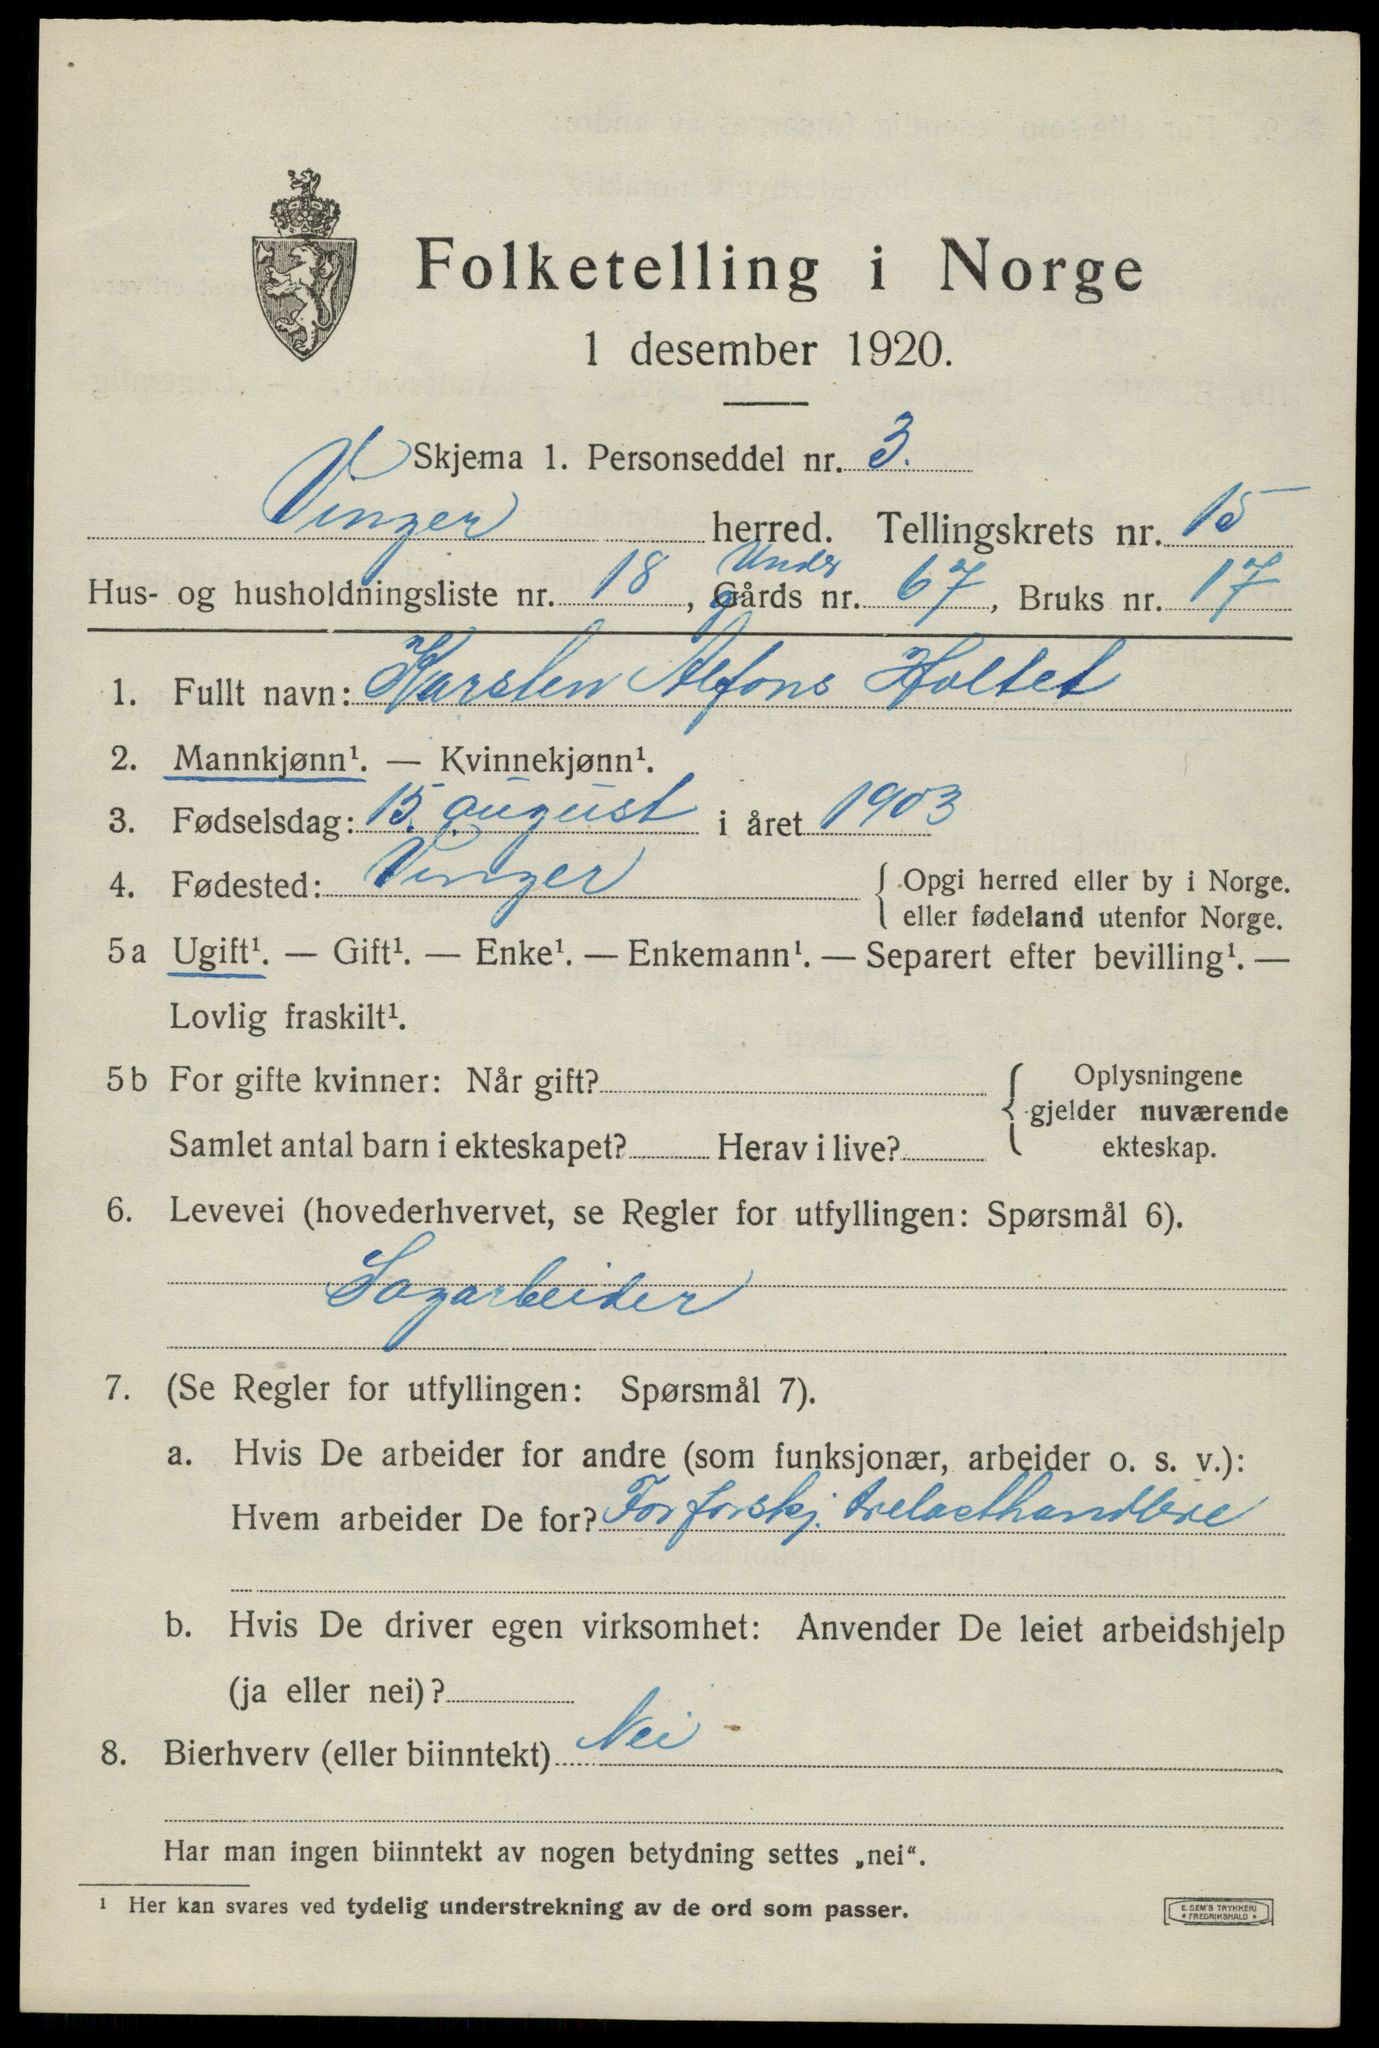 Folketelling i Norge
1 desember 1920.
Skjema 1. Personseddel nr. 3.
Vinger herred. Tellingskrets nr. 15
Under
Hus- og husholdningsliste nr. 18, gårds nr. 67, Bruks nr. 17
1. Fullt navn: Karsten Alfons Holtet
2. Mannkjønn¹. — Kvinnekjønn¹.
3. Fødselsdag: 15. august i året 1903
4. Fødested: Vinger { Opgi herred eller by i Norge.
eller fødeland utenfor Norge.
5a Ugift¹. — Gift¹. — Enke¹. — Enkemann¹. — Separert efter bevilling¹. —
Lovlig fraskilt¹.
5b For gifte kvinner: Når gift? { Oplysningene
gjelder nuværende
Samlet antal barn i ekteskapet? Herav i live? ekteskap.
6. Levevei (hovederhvervet, se Regler for utfyllingen: Spørsmål 6).
Sagarbeider
7. (Se Regler for utfyllingen: Spørsmål 7).
a. Hvis De arbeider for andre (som funksjonær, arbeider o. s. v.):
Hvem arbeider De for? For forskj. trelasthandlere
b. Hvis De driver egen virksomhet: Anvender De leiet arbeidshjelp
(ja eller nei)?
8. Bierhverv (eller biinntekt) Nei
Har man ingen biinntekt av nogen betydning settes „nei“.
¹ Her kan svares ved tydelig understrekning av de ord som passer.
E. SEM'S TRYKKERI
* FREDRIKSHALD *